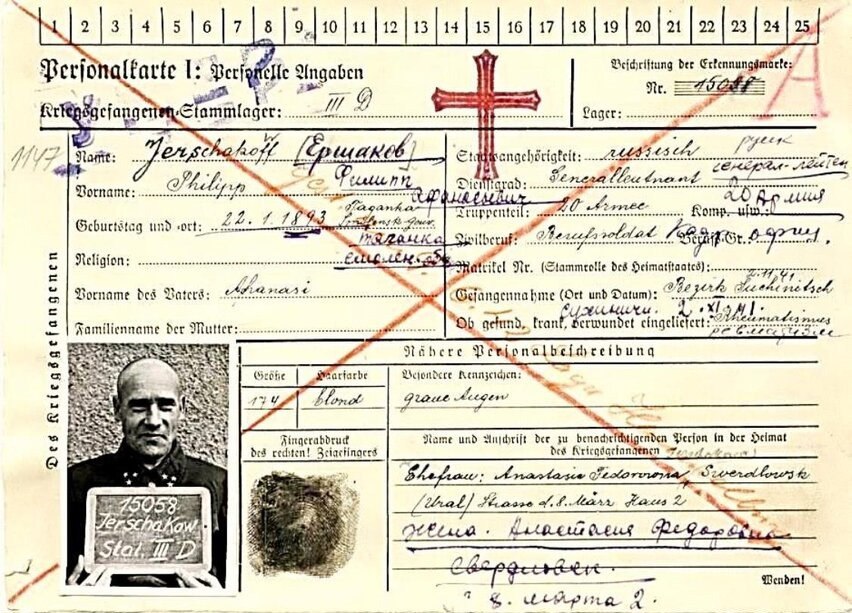 1 2 3 4 5 6 7 8 9 10 11 12 13 14 15 16 17 18 19 20 21 22 23 24 25
Personalkarte I: Personelle Angaben
Kriegsgefangenen-Stammlager: III D
Beschriftung der Erkennungsmarke:
Nr. 15058
Lager:
A
1147
Des Kriegsgefangenen
Name: Jerschakoff (Ершаков)
Vorname: Philipp Филипп
Афанасьевич
Geburtstag und -ort: 22. 1. 1893
Religion:
Vorname des Vaters: Afanasi
Familienname der Mutter:
Staatsangehörigkeit: russisch русск
Dienstgrad: Generalleutnant генерал-лейтен
Truppenteil: 20 Armee Komp. usw.: 20 Армия
Zivilberuf: Berufssoldat Кадр. офиц.
Matrikel Nr. (Stammrolle des Heimatstaates):
Gefangennahme (Ort und Datum): 2.11.41 Bezirk Suchinitsch
Сухиничи 2. XI. 41.
Ob gesund, krank, verwundet eingeliefert: Rheumatismus
ревматизм
Nähere Personalbeschreibung
Größe Haarfarbe Besondere Kennzeichen:
174 blond graue Augen
Fingerabdruck
des rechten! Zeigefingers
Name und Anschrift der zu benachrichtigenden Person in der Heimat
des Kriegsgefangenen
Ehefrau: Anastasia Fedorowna, Swerdlowsk
(Ural) Strasse d. 8. März Haus 2
жена. Анастасия Федоровна
Свердловск.
8. марта 2.
Wenden!
15058
Jerschakow
Stal. III D